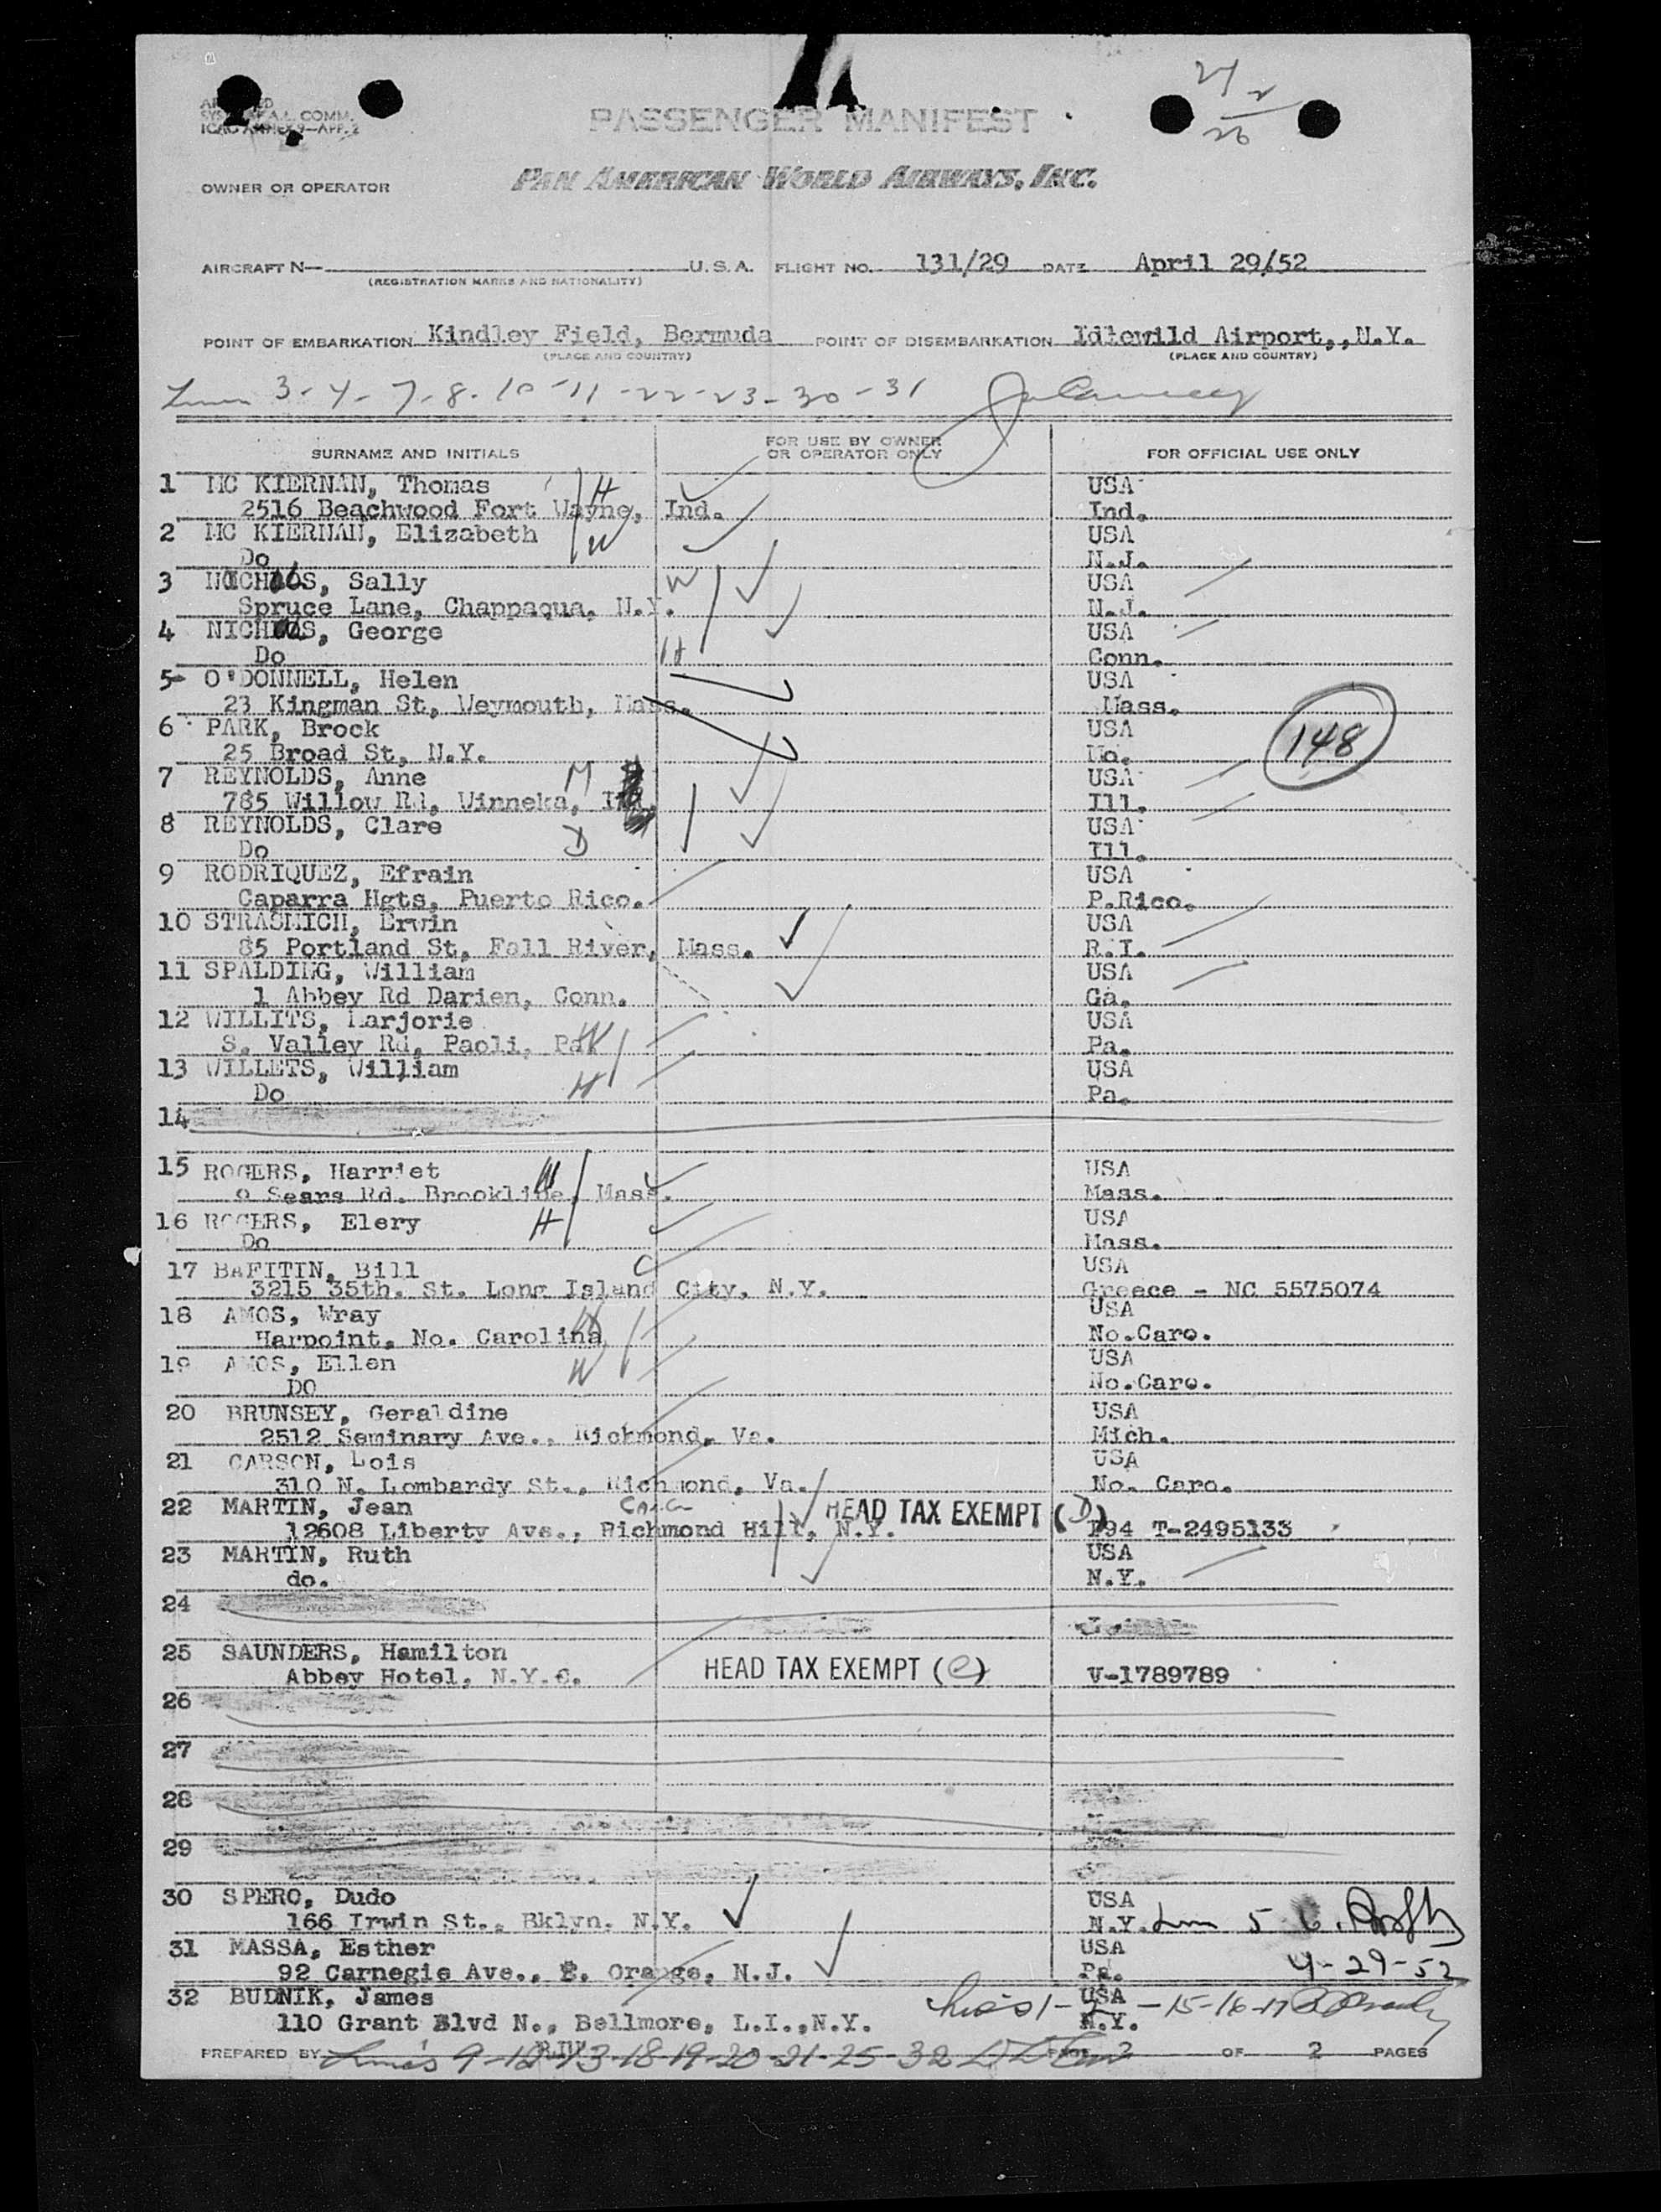 24
2
26
ICAO ANNEX 9—APP. 2
PASSENGER MANIFEST
OWNER OR OPERATOR
PAN AMERICAN WORLD AIRWAYS, INC.
AIRCRAFT N— U. S. A. FLIGHT NO. 131/29 DATE April 29/52
(REGISTRATION MARKS AND NATIONALITY)
POINT OF EMBARKATION Kindley Field, Bermuda POINT OF DISEMBARKATION Idlewild Airport,,N.Y.
(PLACE AND COUNTRY) (PLACE AND COUNTRY)
3-4-7-8-10-11-22-23-30-31
SURNAME AND INITIALS FOR USE BY OWNER OR OPERATOR ONLY FOR OFFICIAL USE ONLY
1 MC KIERNAN, Thomas H USA
2516 Beachwood Fort Wayne, Ind. Ind.
2 MC KIERNAN, Elizabeth W USA
Do N.J.
3 Sally W USA
Spruce Lane, Chappaqua, N.Y. N.J.
4 George USA
Do H Conn.
5 O'DONNELL, Helen USA
23 Kingman St, Weymouth, Mass. Mass.
6 PARK, Brock USA
25 Broad St, N.Y. 148
7 REYNOLDS, Anne M USA
785 Willow Rd, Winneka, Ill.
8 REYNOLDS, Clare D USA
Do Ill.
9 RODRIQUEZ, Efrain USA
Caparra Hgts, Puerto Rico. P.Rico.
10 STRASMICH, Erwin USA
85 Portland St, Fall River, Mass. R.I.
11 SPALDING, William USA
1 Abbey Rd Darien, Conn. Ga.
12 WILLITS, Marjorie USA
S. Valley Rd, Paoli, Pa. W Pa.
13 WILLETS, William USA
Do H Pa.
14
15 ROGERS, Harriet W USA
Sears Rd. Brookline, Mass. Mass.
16 ROGERS, Elery H USA
Do Mass.
17 BAFITIN, Bill C USA
3215 35th. St. Long Island City, N.Y. Greece - NC 5575074
18 AMOS, Wray H USA
Harpoint, No. Carolina No.Caro.
19 AMOS, Ellen W USA
DO No.Caro.
20 BRUNSEY, Geraldine USA
2512 Seminary Ave., Richmond, Va. Mich.
21 CARSON, Lois USA
310 N. Lombardy St., Richmond, Va. No. Caro.
22 MARTIN, Jean HEAD TAX EXEMPT (D)
12608 Liberty Ave., Richmond Hill, N.Y. I94 T-2495133
23 MARTIN, Ruth USA
do. N.Y.
24
25 SAUNDERS, Hamilton
Abbey Hotel, N.Y.C. HEAD TAX EXEMPT (e) V-1789789
26
27
28
29
30 SPERO, Dudo USA
166 Irwin St., Bklyn. N.Y. N.Y. 5 6.
31 MASSA, Esther USA
92 Carnegie Ave., E. Orange, N.J. Pa. 4-29-52
32 BUDNIK, James USA
110 Grant Blvd N., Bellmore, L.I.,N.Y. N.Y. 1-2-15-16-17
PREPARED BY 9-12-13-18-19-20-21-25-32 PAGE 2 OF 2 PAGES